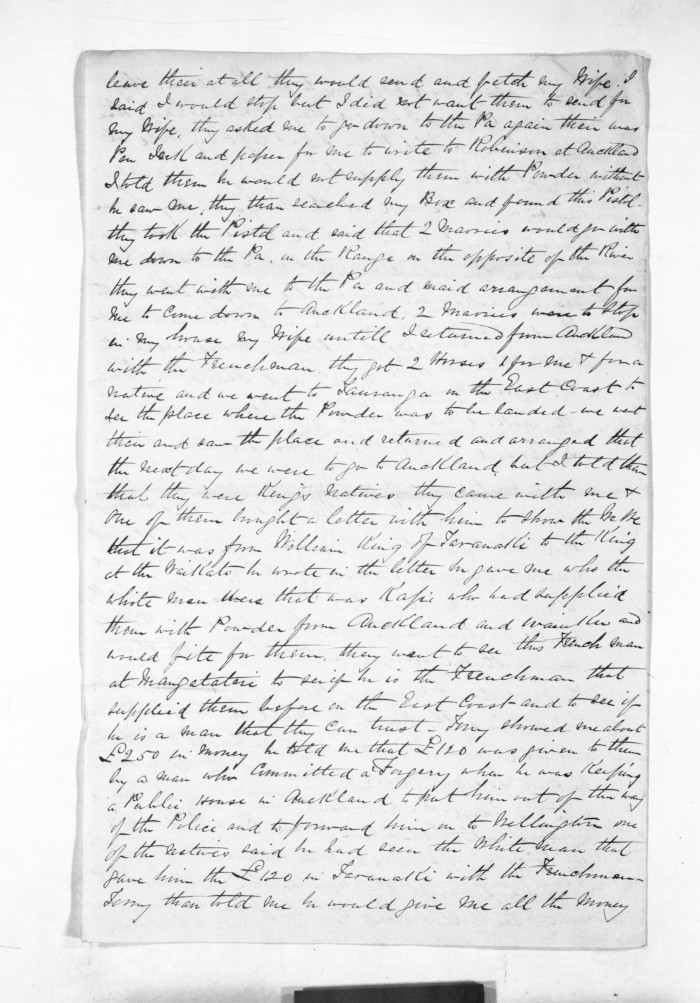 leave their at all they would send and fetch my Wife. I
said I would stop but I did not want them to send for
my Wife, they asked me to go down to the Pa again their was
Pen Ink and paper for me to write to Robinson at Auckland
I told them he would not supply them with Powder without
he saw me, they than searched my Box and found this Pistol.
they took the Pistol and said that 2 Maories would go with
me down to the Pa. in the Range on the opposite of the River
they went with me to the Pa and maid arrangement for
me to come down to Auckland, 2 Maories were to stop
in my house my Wife untill I returned from Auckland
with the Frenchman. they got 2 Horses 1 for me & for a
native and we went to Tauranga on the East Coast to
see the place where the Powder was to be landed - we went
their and saw the place and returned and arranged that
the next day we were to go to Auckland, but I told than
that they were Kings natives they came with me &
One of them brought a letter with him to show the
that it was from William King of Taranaki to the King
at the Waikato he wrote in the letter he gave me who the
white man that was who had supplied
them with Powder from Auckland and and
would fite for them. they want to see this French man
at Mangatatari to see if he is the Frenchman that
supplied them before on the East Coast and to see if
he is a man that they can trust - showed me about
£250 in money he told me that £120 was given to them
by a man who Committed a Forgery when he was Keeping
a Public House in Auckland to put him out of the way
of the Police and to forward him on to Wellington one
of the natives said he had seen the White man that
gave him the £120 in Taranaki with the Frenchman -
than told me he would give me all the money